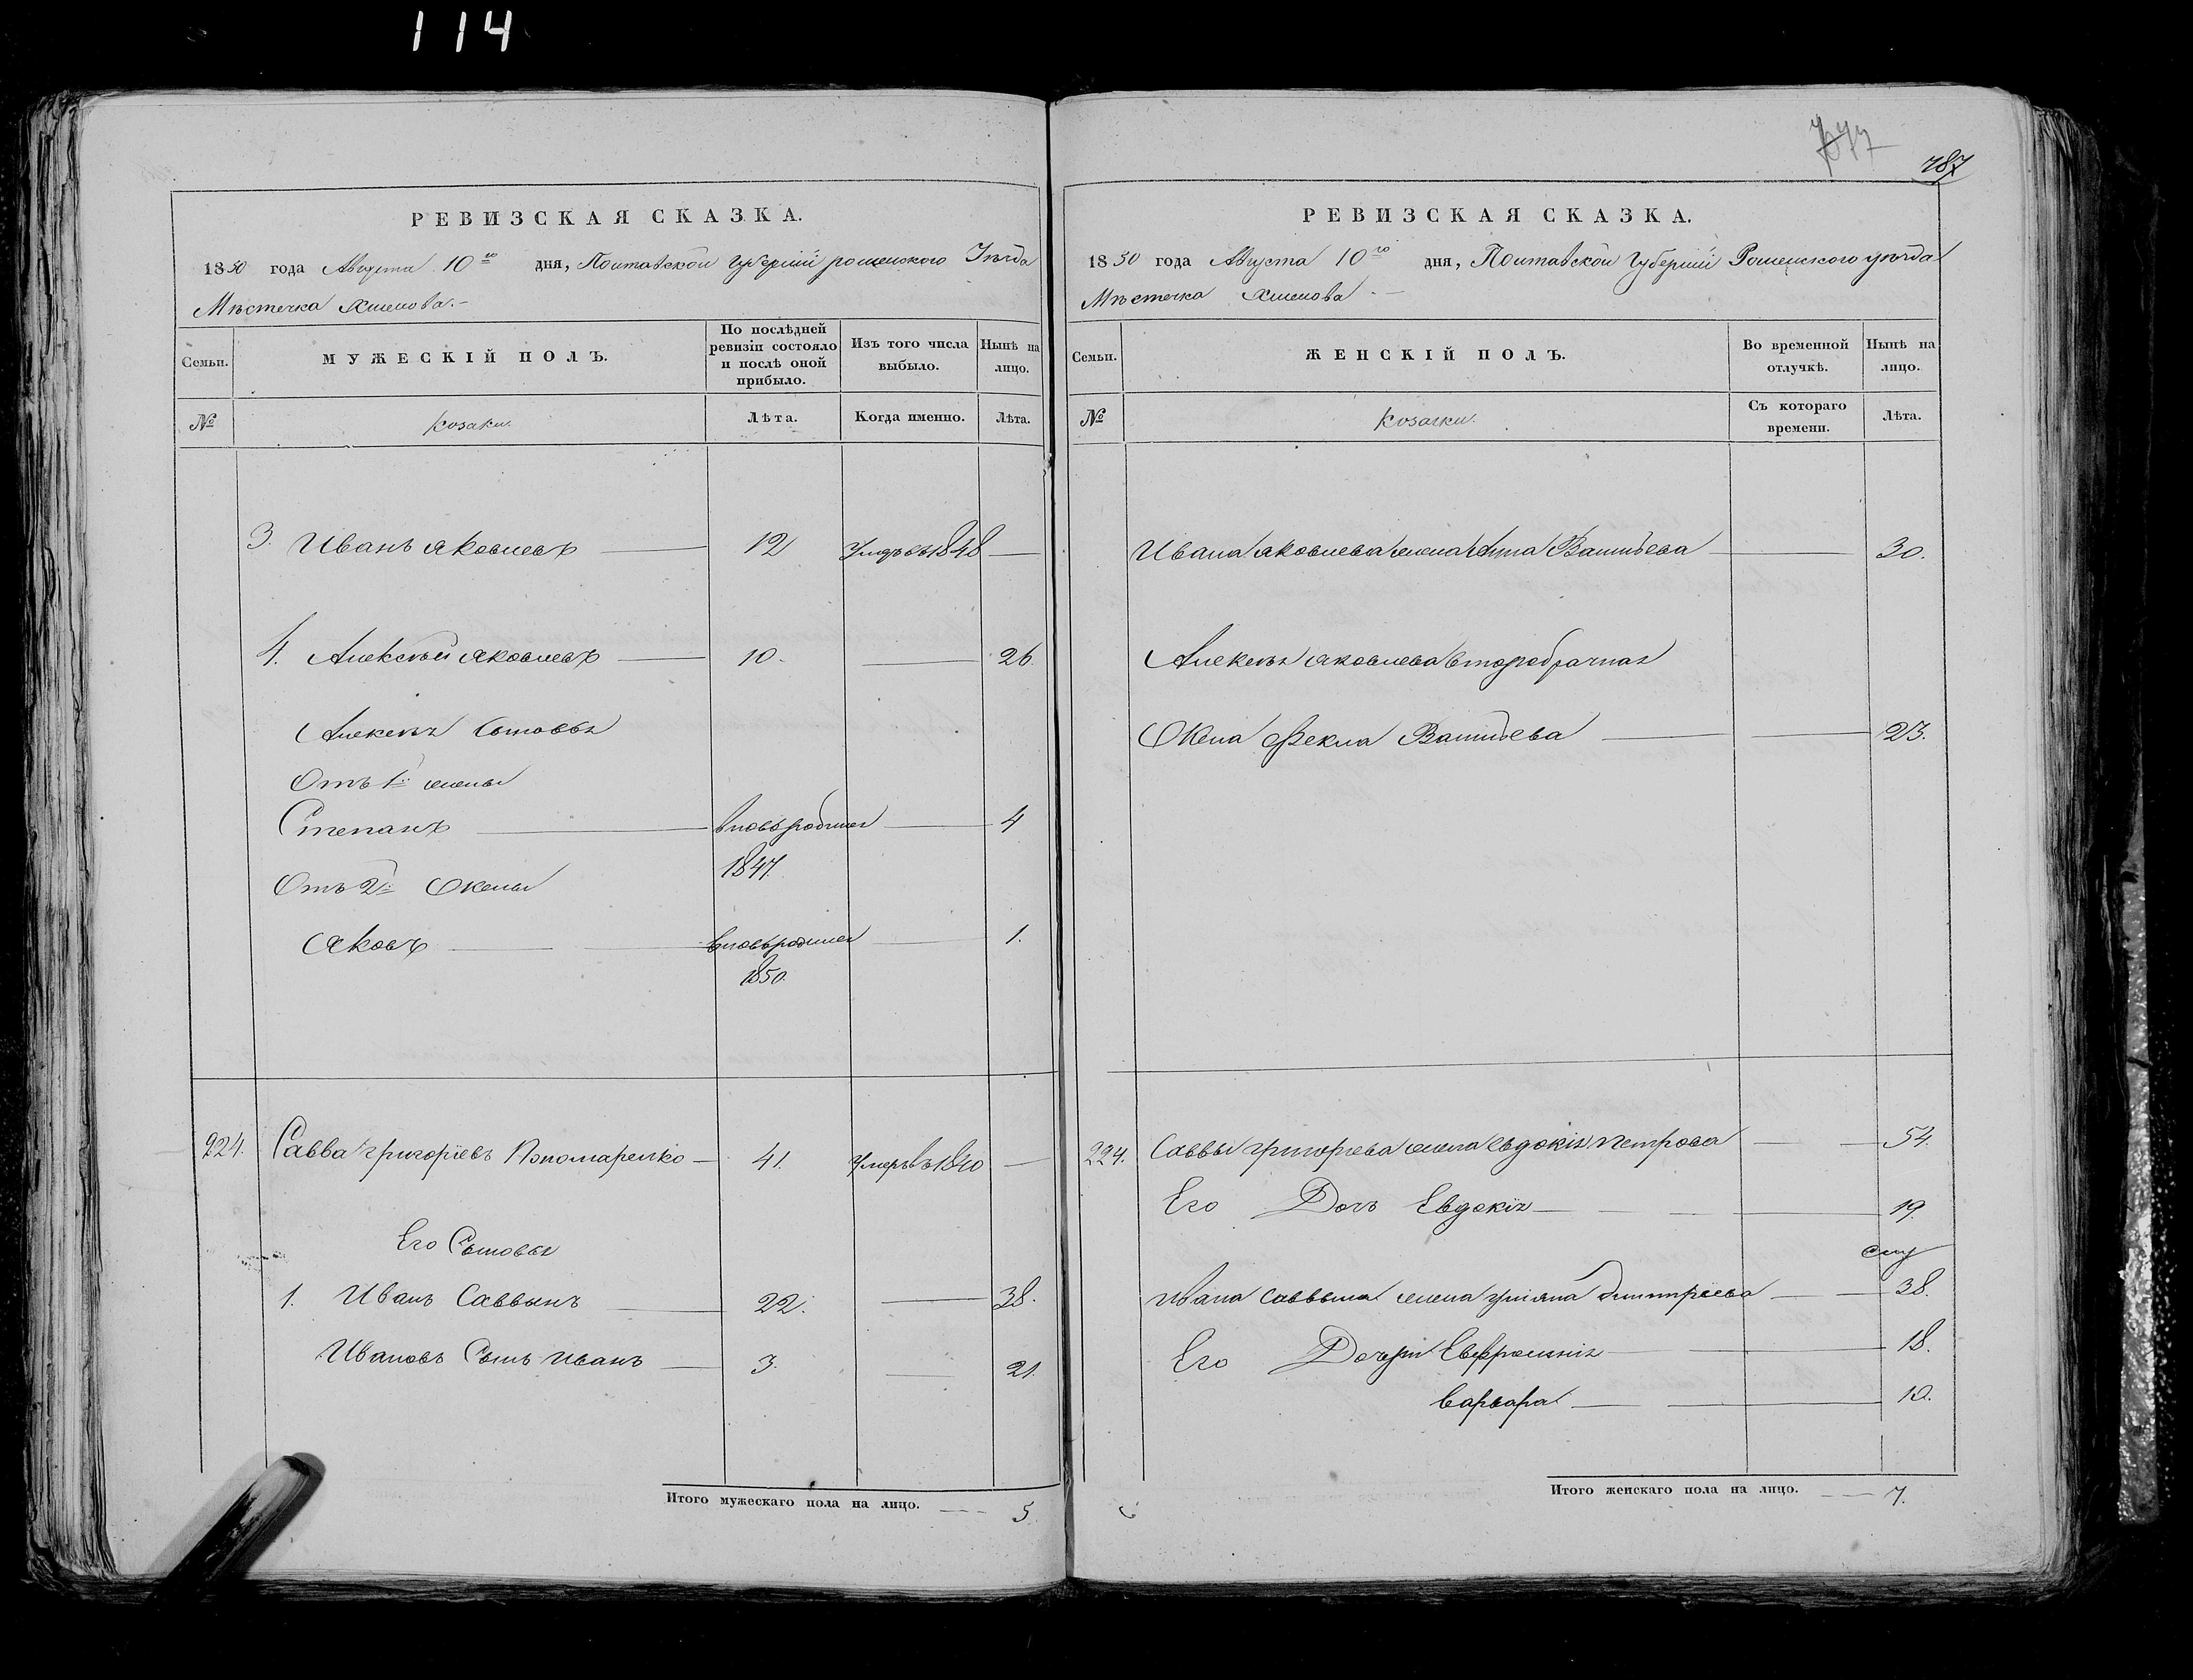 114
РЕВИЗСКАЯ СКАЗКА.
1850 года Августа 10го дня, Полтавской Губерніи роменского Уѣзда
Мѣстечка Хмелова.
Семьи.
МУЖЕСКІЙ ПОЛЪ.
По послѣдней ревизіи состояло и послѣ оной прибыло.
Изъ того числа выбыло.
Нынѣ на лицо.
№
козаки.
Лѣта.
Когда именно.
Лѣта.
3. Иванъ яковлевъ 12 Умеръ въ 1848
4. Алексѣй яковлевъ 10. 26.
Алексѣя Сыновья
Отъ 1й жены
Степанъ вновьродился 4
1847.
Отъ 2й Жены
Яковъ вновьродился 1.
1850.
224. Савва григоріевъ Пономаренко 41. Умеръ въ 1840
Его Сыновья
1. Иванъ Саввинъ 22. 38.
Ивановъ Сынъ иванъ 3. 21.
Итого мужескаго пола на лицо. 5
787
РЕВИЗСКАЯ СКАЗКА.
1850 года Августа 10го дня, Полтавской Губерніи Роменского уѣзда
Мѣстечка Хмелова
Семьи.
ЖЕНСКІЙ ПОЛЪ.
Во временной отлучкѣ.
Нынѣ на лицо.
№
козачки.
Съ котораго времени.
Лѣта.
Ивана яковлева жена Анна Васильева 30.
Алексѣя яковлева второбрачная
Жена Фекла Васильева 23.
224. Саввы григорьева жена евдокія петрова 54.
Его Дочь Евдокія 19.
Ивана саввина жена уліяна дмитріева 38.
Его Дочери Евфросинія 18.
варвара 10.
Итого женскаго пола на лицо. 7.